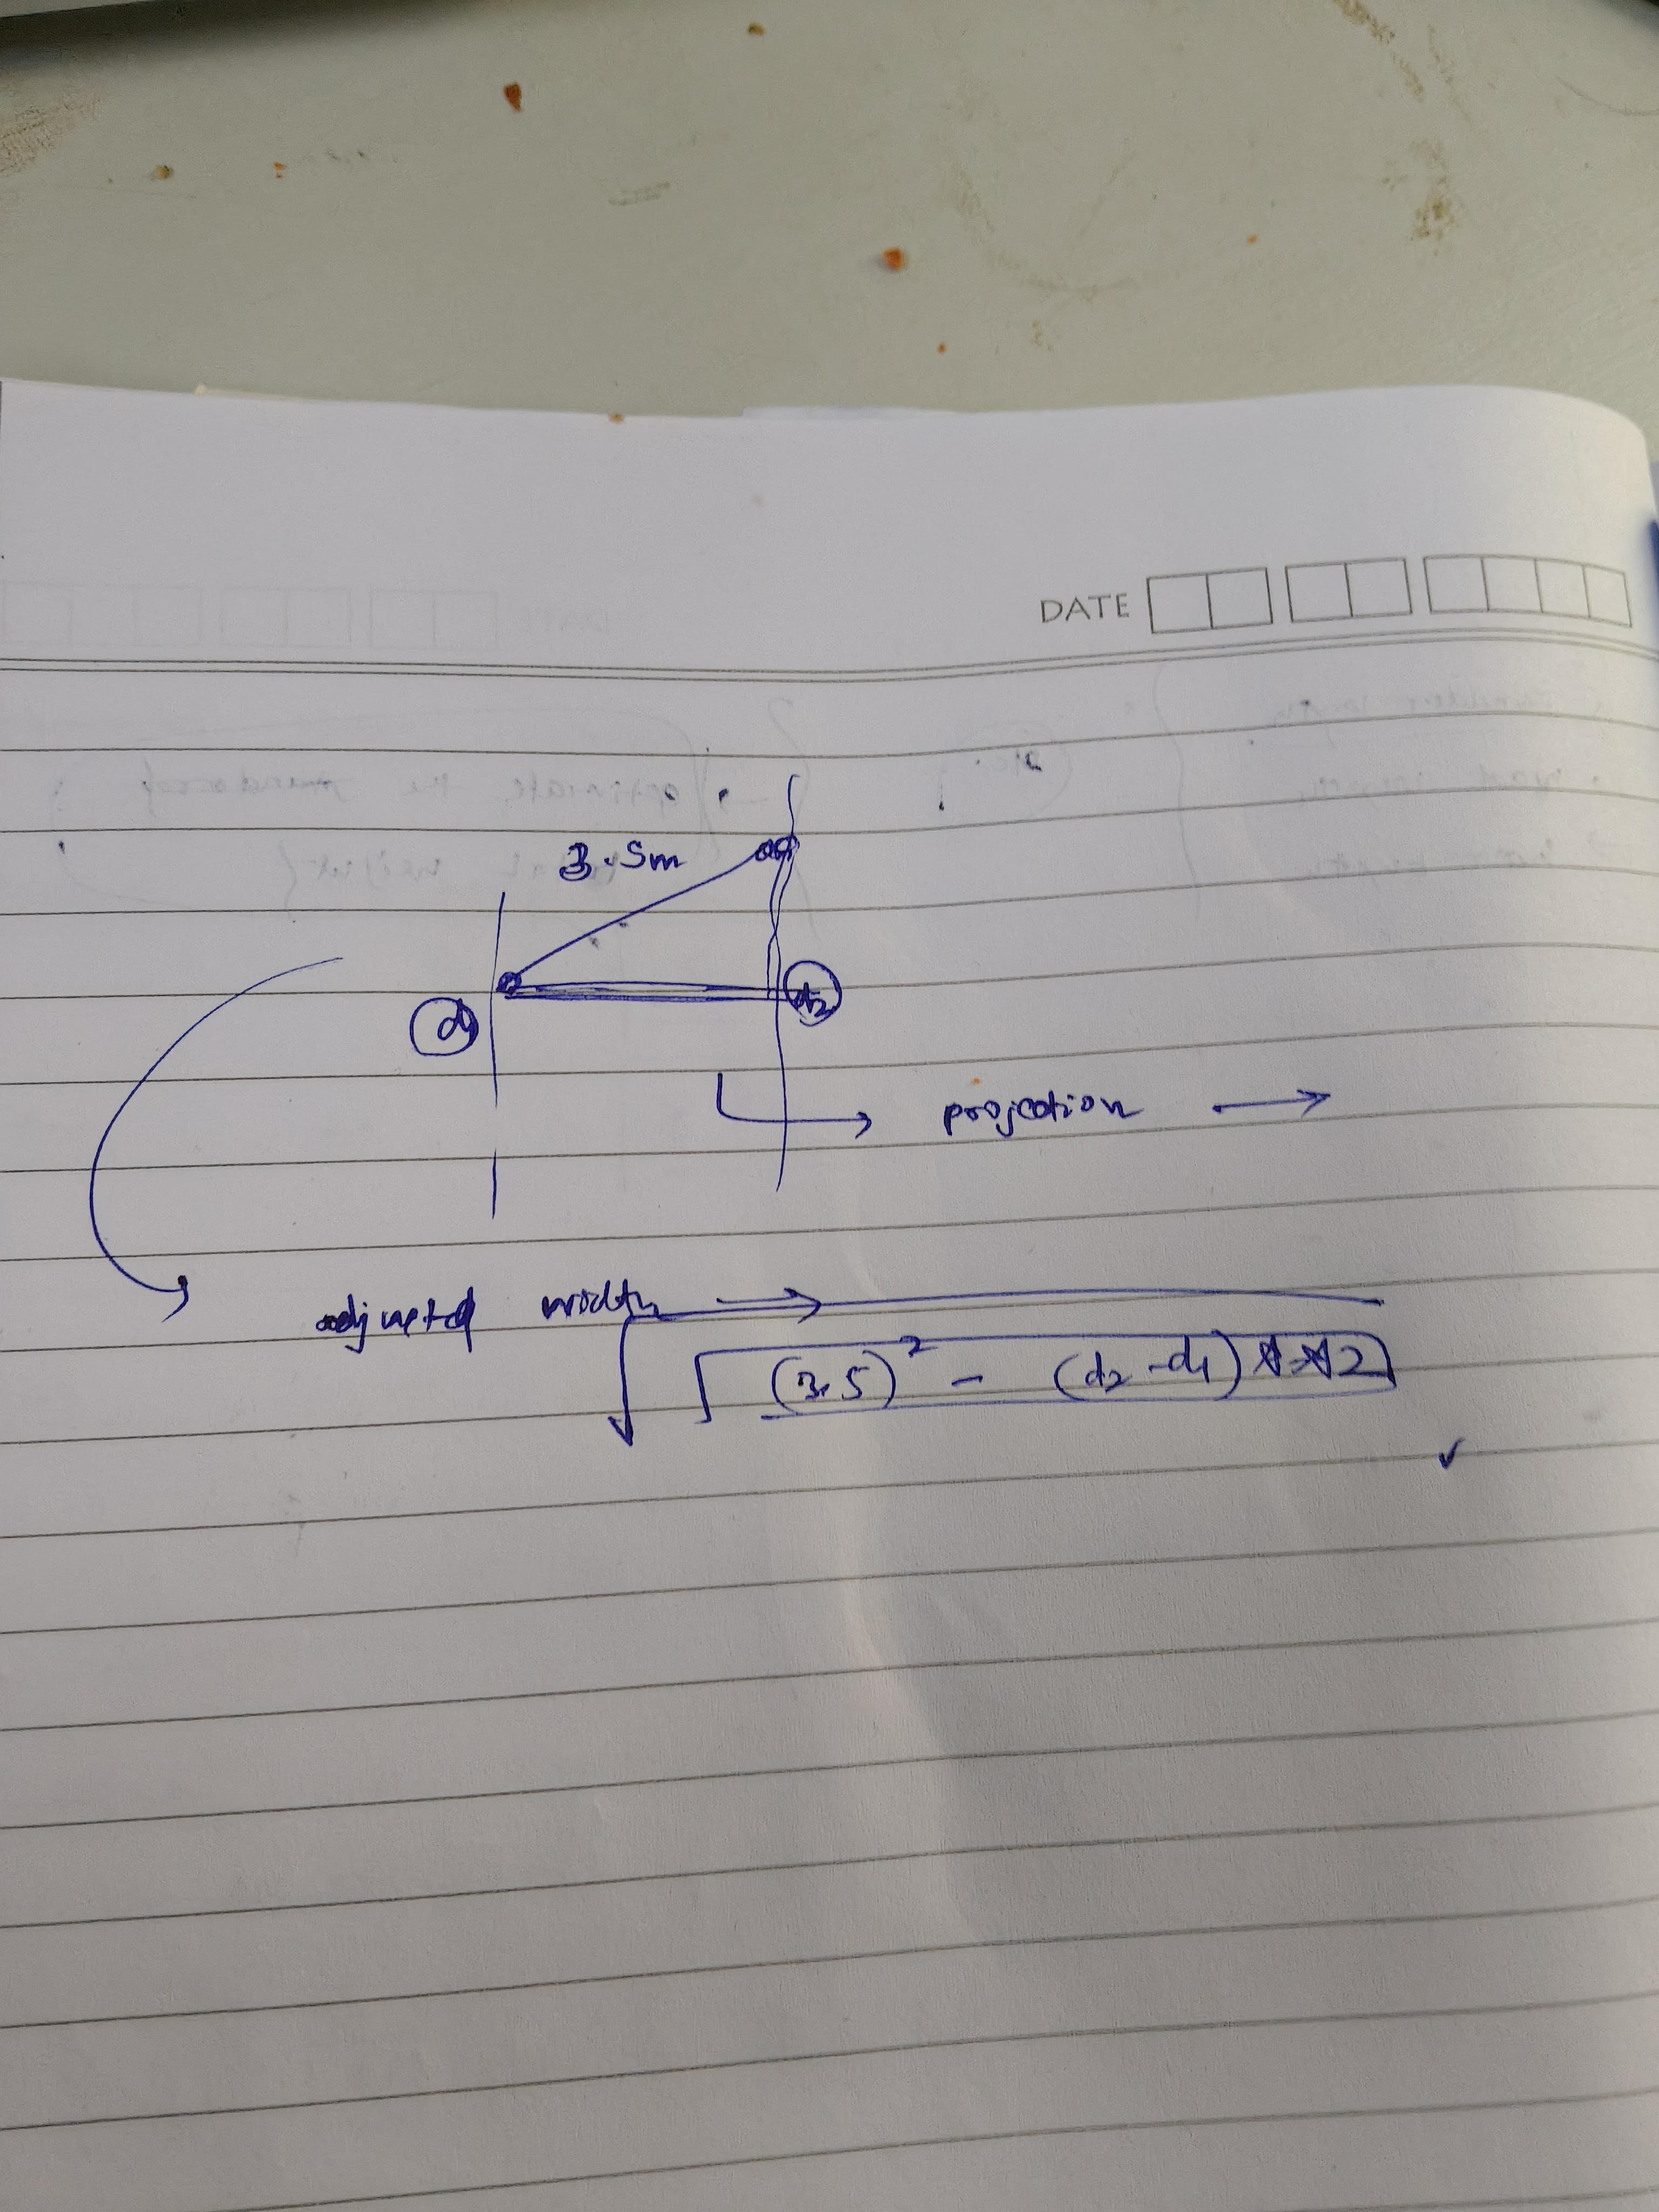 DATE
3.5m
d1
d2
projection
adjusted width
√ (3.5)² - (d2 - d1) **2